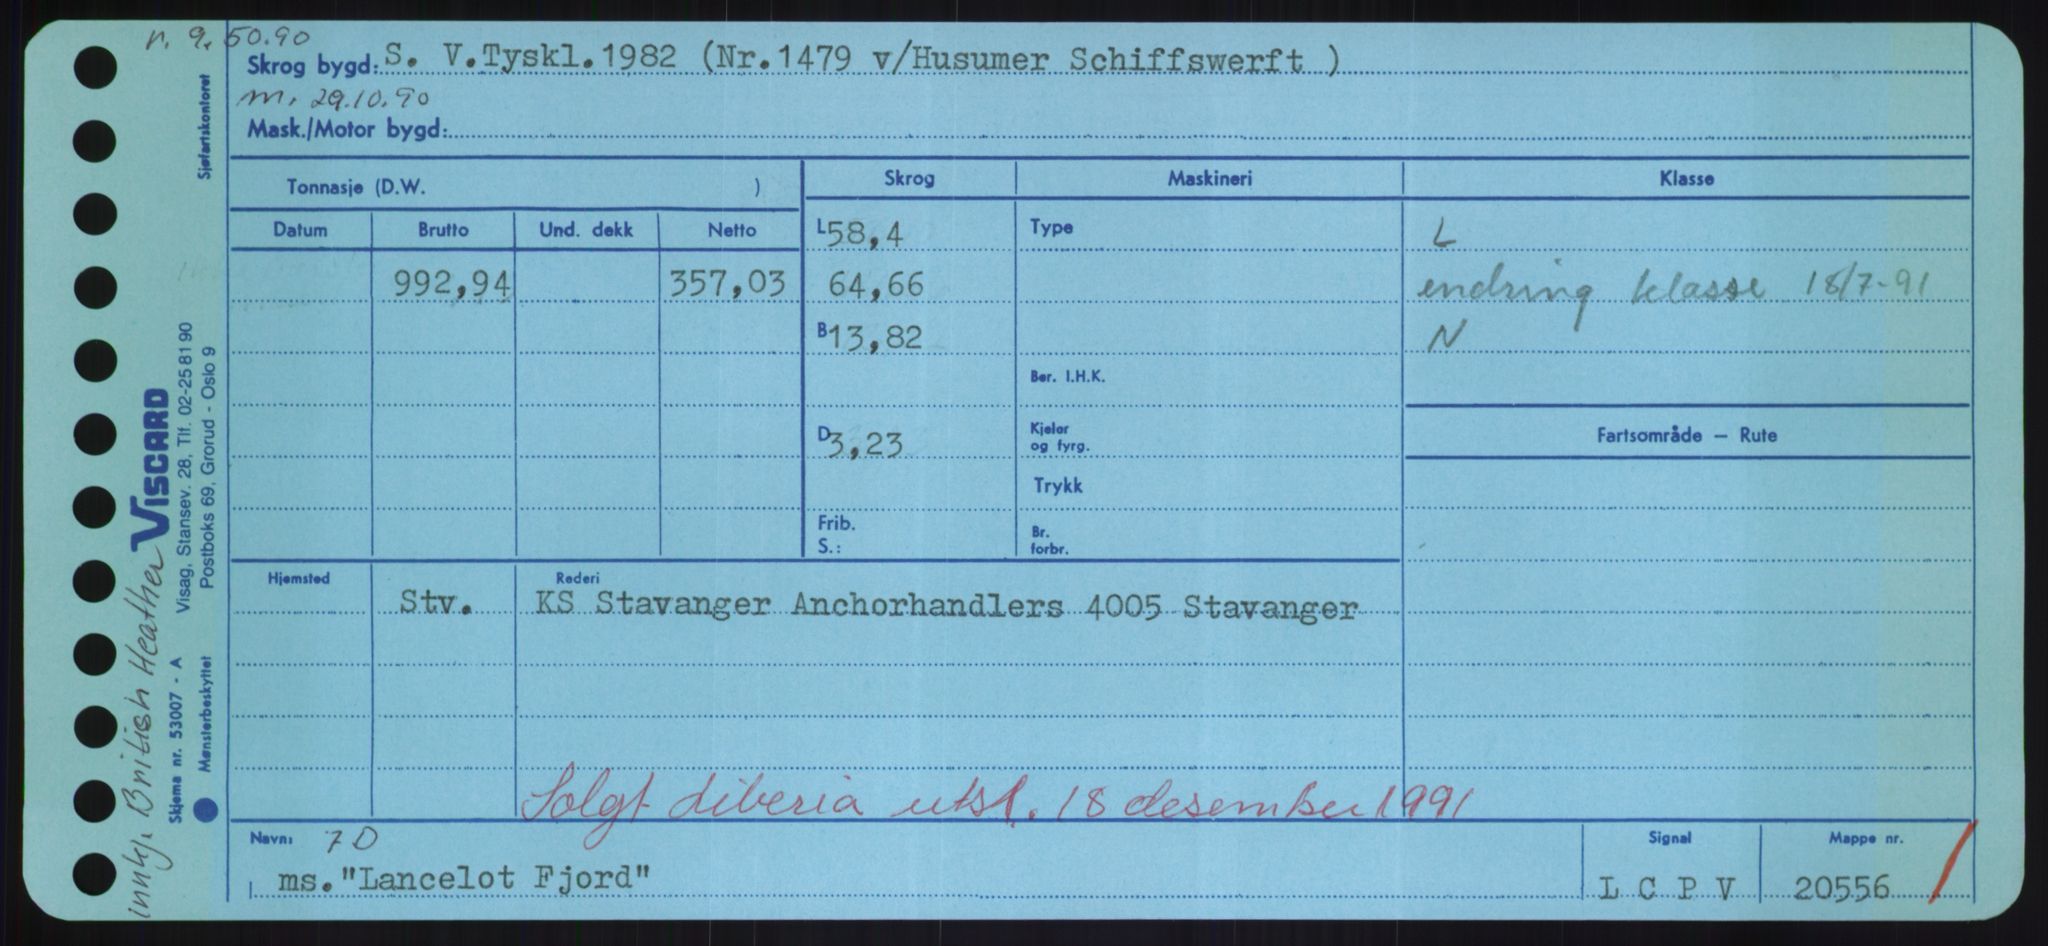 n. 9. 50.90
Skrog bygd: S. V.Tyskl.1982 (Nr.1479 v/Husumer Schiffswerft )
m. 29.10.90
Mask./Motor bygd:
Tonnasje (D.W. )
Skrog Maskineri Klasse
Datum Brutto Und. dekk Netto
L 58,4 Type L
992,94 357,03 64,66 endring klasse 18/7-91
B 13,82 N
Ber. I.H.K.
D 3,23 Kjeler og fyrg. Fartsområde – Rute
Trykk
Frib. S.: Br. forbr.
Hjemsted Rederi
Stv. KS Stavanger Anchorhandlers 4005 Stavanger
Solgt Liberia utsl. 18 desember 1991
Navn: 7D Signal Mappe nr.
ms."Lancelot Fjord" L C P V 20556
innkj. British Heather
VISCARD
Visag, Stansev. 28, Tlf. 02-25 81 90
Postboks 69, Grorud - Oslo 9
Skjema nr. 53007 - A
Mønsterbeskyttet
Sjøfartskontoret